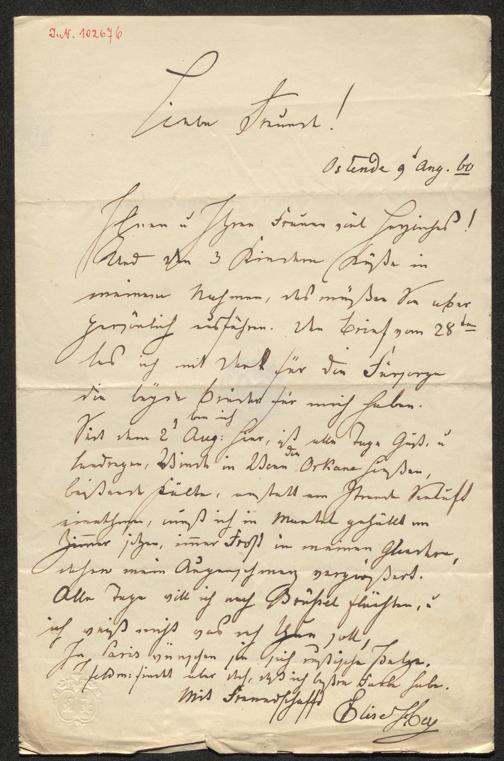 I.N. 102676
Lieber Freund!
Ostende 9t Aug. 60
Ihnen u Ihren Frauen viel Herzliches!
Und den 3 Kindern Küße in
meinem Nahmen, das müßen Sie aber
persönlich ausführen. Den Brief vom 28ten
las ich mit Dank für die Fürsorge
die beyde Brüder für mich haben.
Seit dem 2t Aug: bin ich hier, ist alle Tage Guß, u
Landregen, Winde in Wien Orkane heißen,
beißende Kälte, anstatt am Strand Seeluft
einathmen, muß ich in Mantel gehüllt im
Zimmer sitzen, immer Frost in meinen Gliedern,
daher mein Augenschmerz vergrößert.
Alle Tage will ich nach Brüßel flüchten, u
ich weiß nicht was ich thun soll!
In Paris wünschen sie sich russische Pelze.
aber doch, daß ich beßre habe.
Mit Freundschaft
Elise